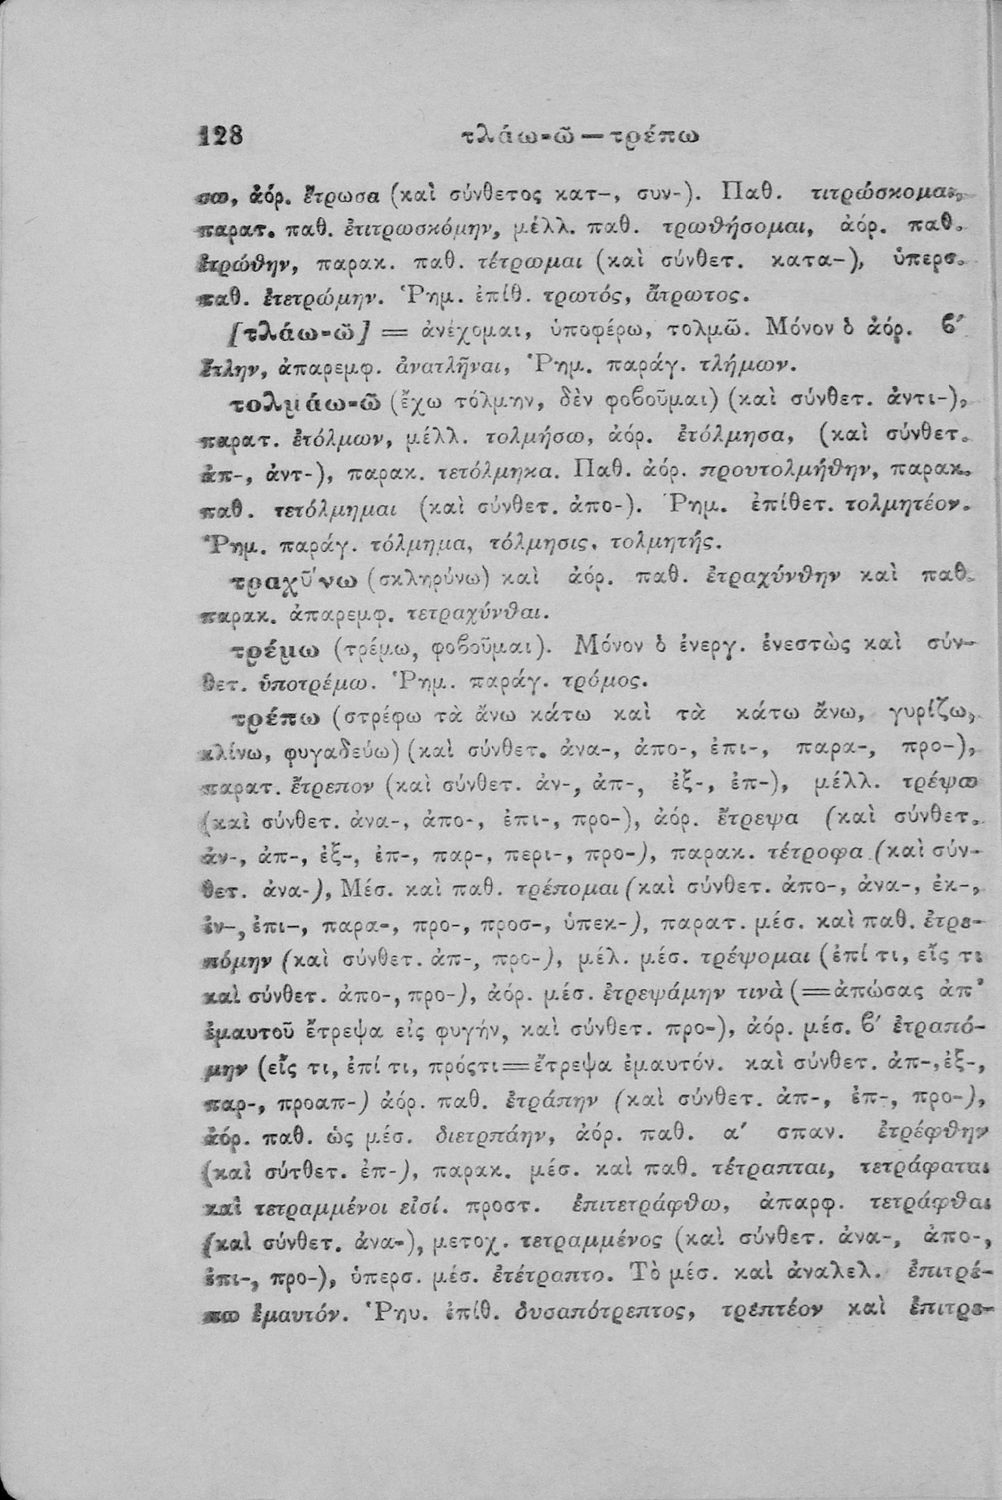 128 τλάω-ῶ — τρέπω
σω, ἀόρ. ἔτρωσα (καὶ σύνθετος κατ-, συν-). Παθ. τιτρώσκομαι,
παρατ. παθ. ἐτιτρωσκόμην, μέλλ. παθ. τρωθήσομαι, ἀόρ. παθ.
ἐτρώθην, παρακ. παθ. τέτρωμαι (καὶ σύνθετ. κατα-), ὑπερσ.
παθ. ἐτετρώμην. Ῥημ. ἐπίθ. τρωτός, ἄτρωτος.
[τλάω-ῶ] = ἀνέχομαι, ὑποφέρω, τολμῶ. Μόνον ὁ ἀόρ. ϐ′
ἔτλην, ἀπαρεμφ. ἀνατλῆναι, Ῥημ. παράγ. τλήμων.
τολμάω-ῶ (ἔχω τόλμην, δὲν φοϐοῦμαι) (καὶ σύνθετ. ἀντι-),
παρατ. ἐτόλμων, μέλλ. τολμήσω, ἀόρ. ἐτόλμησα, (καὶ σύνθετ.
ἀπ-, ἀντ-), παρακ. τετόλμηκα. Παθ. ἀόρ. προυτολμήθην, παρακ.
παθ. τετόλμημαι (καὶ σύνθετ. ἀπο-). Ῥημ. ἐπίθετ. τολμητέον.
Ῥημ. παράγ. τόλμημα, τόλμησις, τολμητής.
τραχῡ́νω (σκληρύνω) καὶ ἀόρ. παθ. ἐτραχύνθην καὶ παθ.
παρακ. ἀπαρεμφ. τετραχύνθαι.
τρέμω (τρέμω, φοϐοῦμαι). Μόνον ὁ ἐνεργ. ἐνεστὼς καὶ σύν-
θετ. ὑποτρέμω. Ῥημ. παράγ. τρόμος.
τρέπω (στρέφω τὰ ἄνω κάτω καὶ τὰ κάτω ἄνω, γυρίζω,
κλίνω, φυγαδεύω) (καὶ σύνθετ. ἀνα-, ἀπο-, ἐπι-, παρα-, προ-),
παρατ. ἔτρεπον (καὶ σύνθετ. ἀν-, ἀπ-, ἐξ-, ἐπ-), μέλλ. τρέψω
(καὶ σύνθετ. ἀνα-, ἀπο-, ἐπι-, προ-), ἀόρ. ἔτρεψα (καὶ σύνθετ.
ἀν-, ἀπ-, ἐξ-, ἐπ-, παρ-, περι-, προ-), παρακ. τέτροφα (καὶ σύν-
θετ. ἀνα-), Μέσ. καὶ παθ. τρέπομαι (καὶ σύνθετ. ἀπο-, ἀνα-, ἐκ-,
ἐν-, ἐπι-, παρα-, προ-, προσ-, ὑπεκ-), παρατ. μέσ. καὶ παθ. ἐτρε-
πόμην (καὶ σύνθετ. ἀπ-, προ-), μέλ. μέσ. τρέψομαι (ἐπί τι, εἴς τι
καὶ σύνθετ. ἀπο-, προ-), ἀόρ. μέσ. ἐτρεψάμην τινὰ (=ἀπώσας ἀπ'
ἐμαυτοῦ ἔτρεψα εἰς φυγήν, καὶ σύνθετ. προ-), ἀόρ. μέσ. ϐ′ ἐτραπό-
μην (εἴς τι, ἐπί τι, πρόςτι=ἔτρεψα ἐμαυτόν. καὶ σύνθετ. ἀπ-,ἐξ-,
παρ-, προαπ-) ἀόρ. παθ. ἐτράπην (καὶ σύνθετ. ἀπ-, ἐπ-, προ-),
ἀόρ. παθ. ὡς μέσ. διετρπάην, ἀόρ. παθ. α′ σπαν. ἐτρέφθην
(καὶ σύτθετ. ἐπ-), παρακ. μέσ. καὶ παθ. τέτραπται, τετράφαται
καὶ τετραμμένοι εἰσί. προστ. ἐπιτετράφθω, ἀπαρφ. τετράφθαι
(καὶ σύνθετ. ἀνα-), μετοχ. τετραμμένος (καὶ σύνθετ. ἀνα-, ἀπο-,
ἐπι-, προ-), ὑπερσ. μέσ. ἐτέτραπτο. Τὸ μέσ. καὶ ἀναλελ. ἐπιτρέ-
πω ἐμαυτόν. Ῥηυ. ἐπίθ. δυσαπότρεπτος, τρεπτέον καὶ ἐπιτρε-